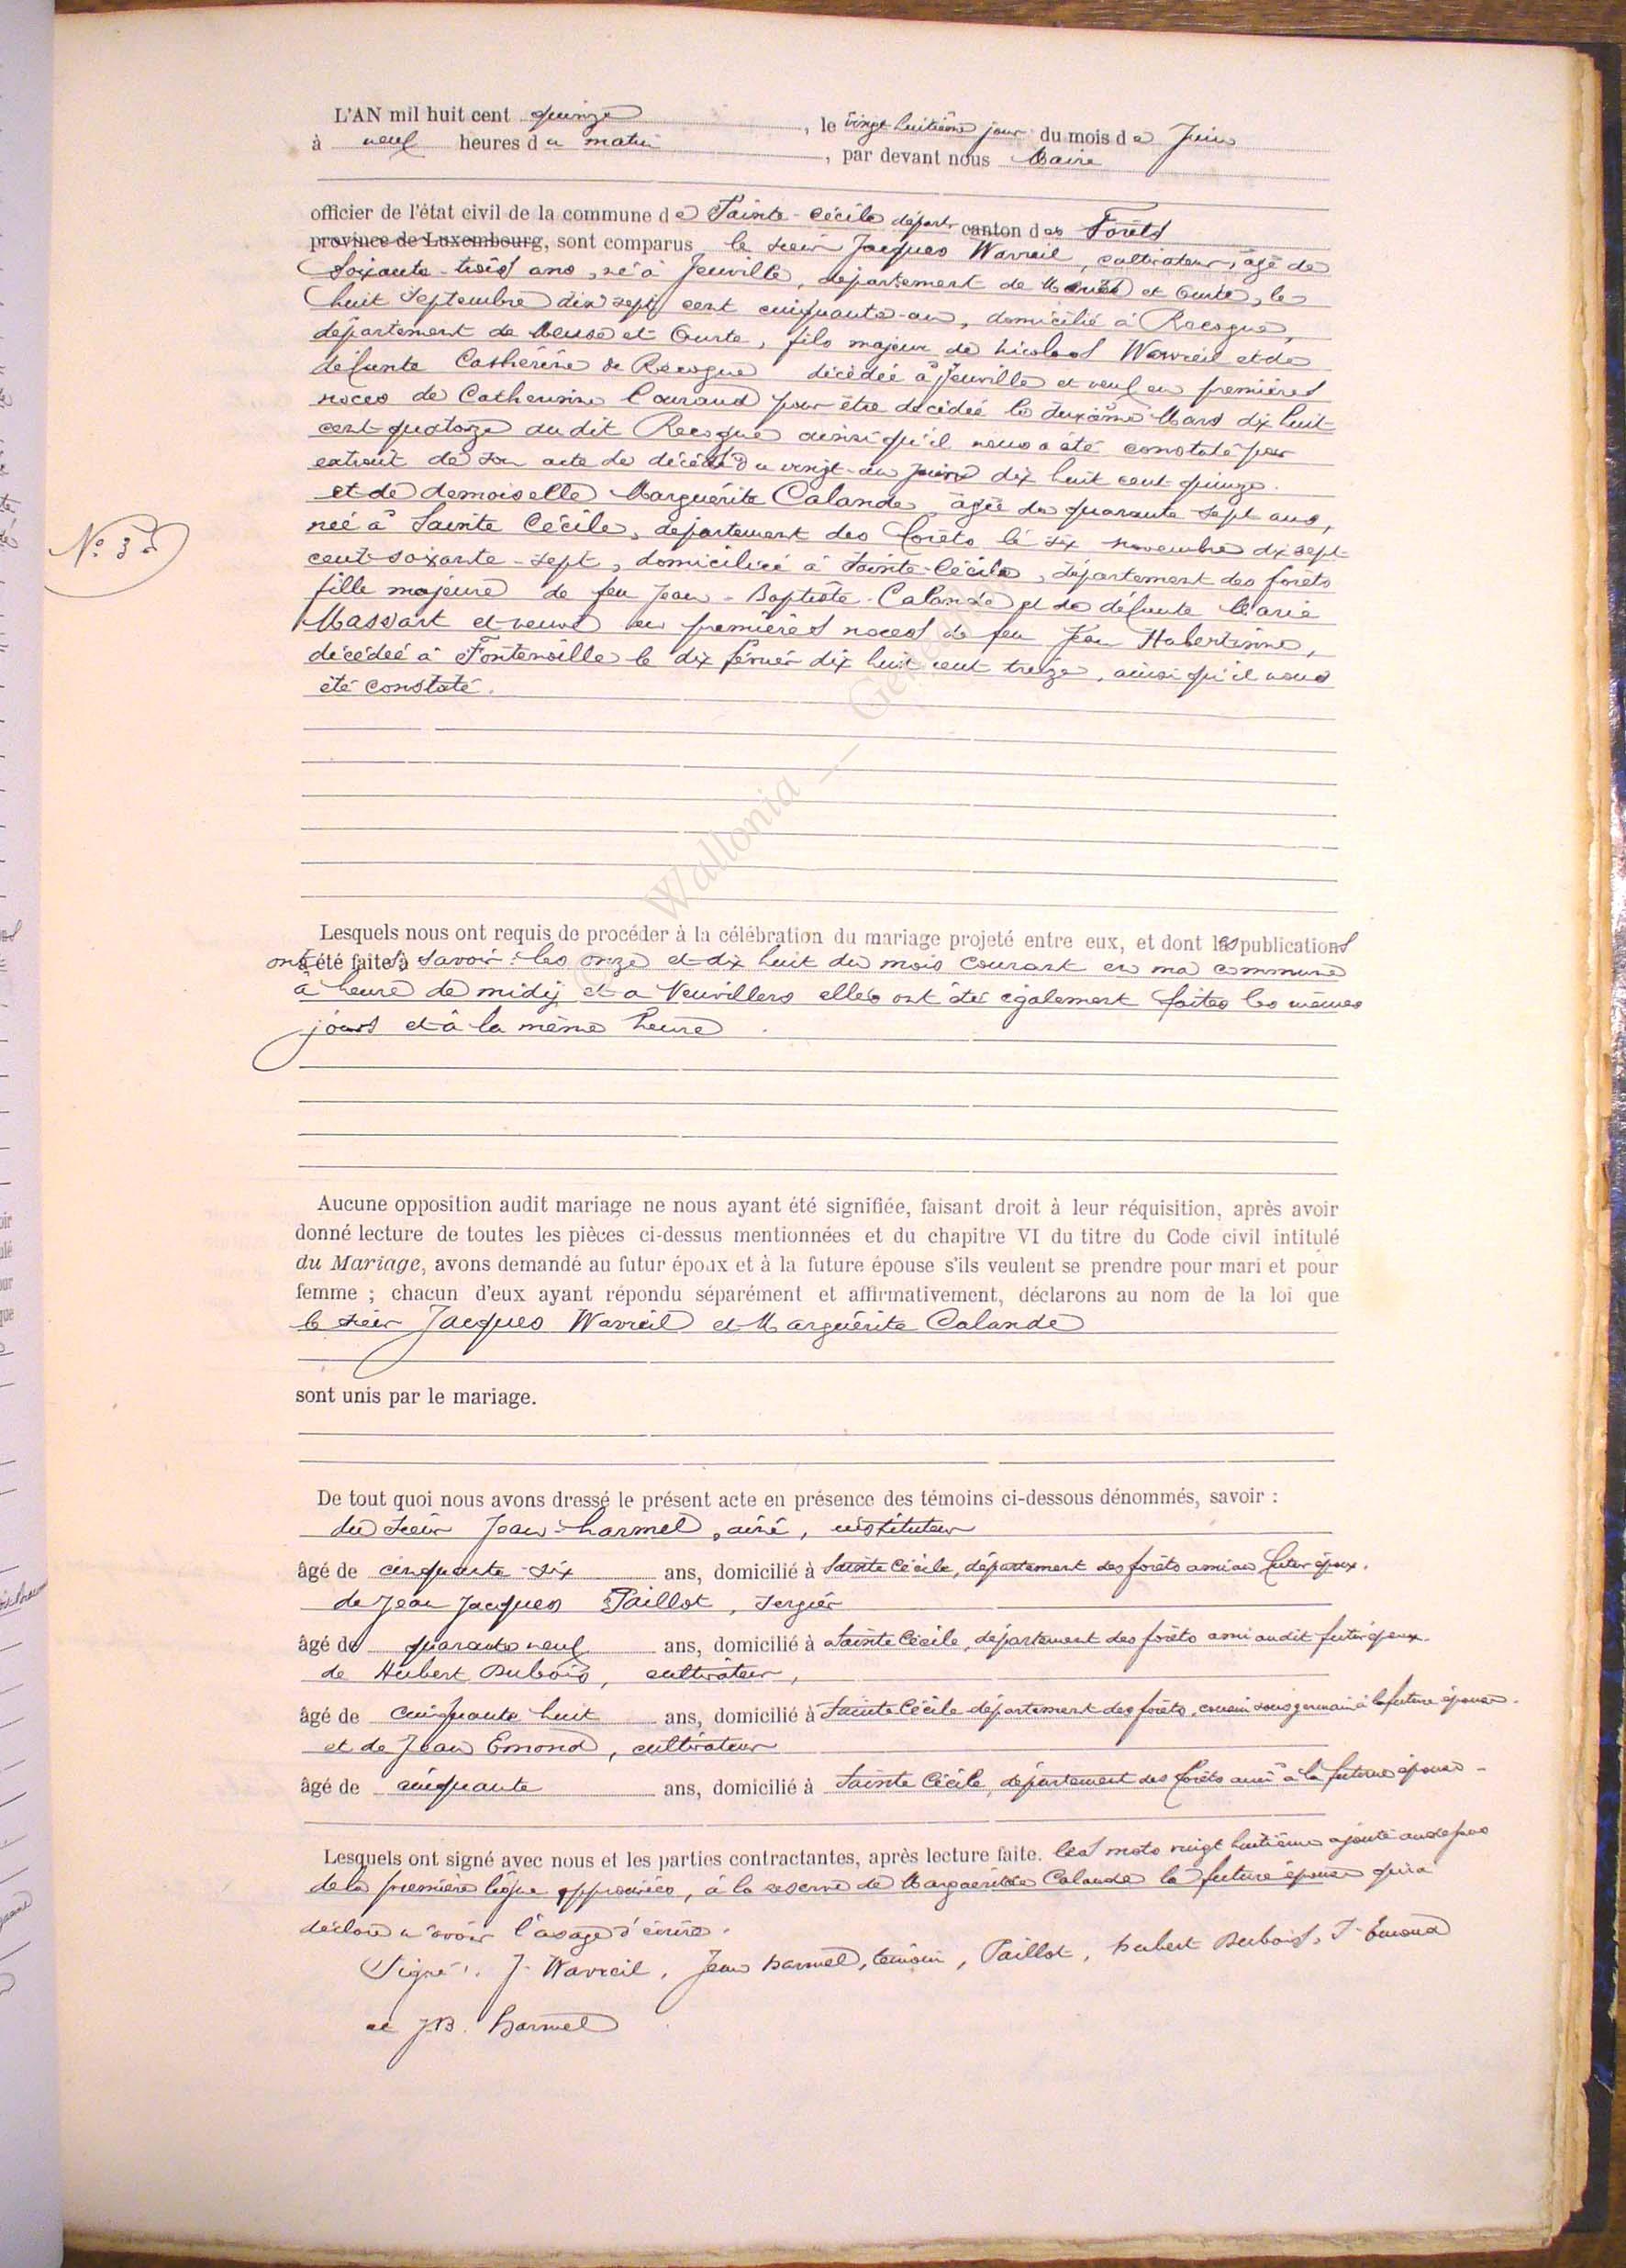 L'AN mil huit cent quinze, le vingt huitième jour du mois de Juin
à neuf heures du matin, par devant nous Maire
officier de l'état civil de la commune de Sainte-Cécile départ. canton des Forêts
province de Luxembourg, sont comparus le sieur Jacques Wavreil, cultivateur, âgé de
soixante-trois ans, né à Jeuville, département de Meuse et Ourte, le
huit Septembre dix sept cent cinquante-un, domicilié à Recogne,
département de Meuse et Ourte, fils majeur de Nicolas Wavreil et de
défunte Catherine de Recogne décédée à Jeuville et veuf en premières
noces de Catherine pour être décédée le deuxième Mars dix huit
cent quatorze audit Recogne ainsi qu'il nous a été constaté par
extrait de son acte de décès du vingt-un Juin dix huit cent quinze.
et de demoiselle Marguérite Calande, âgée de quarante-sept ans,
née à Sainte Cécile, département des forêts le six novembre dix sept
cent-soixante-sept, domiciliée à Sainte-Cécile, département des forêts
N° 3
fille majeure de feu Jean-Baptiste Calande et de défunte Marie
Massart et veuve en premières noces de feu Jean Hubertinne,
décédée à Fontenoille le dix février dix huit cent treize, ainsi qu'il nous
été constaté.
Wallonia -- Généalo
Lesquels nous ont requis de procéder à la célébration du mariage projeté entre eux, et dont les publications
ont été faites savoir: les onze et dix huit du mois courant en ma commune
à heure de midi, et a Neuvillers elles ont été également faites les mêmes
jours et à la même heure.
Aucune opposition audit mariage ne nous ayant été signifiée, faisant droit à leur réquisition, après avoir
donné lecture de toutes les pièces ci-dessus mentionnées et du chapitre VI du titre du Code civil intitulé
du Mariage, avons demandé au futur époux et à la future épouse s'ils veulent se prendre pour mari et pour
femme ; chacun d'eux ayant répondu séparément et affirmativement, déclarons au nom de la loi que
le sieur Jacques Wavreil et Marguérite Calande
sont unis par le mariage.
De tout quoi nous avons dressé le présent acte en présence des témoins ci-dessous dénommés, savoir :
du sieur Jean Harmel, ainé, instituteur
âgé de cinquante-six ans, domicilié à Sainte Cécile, département des forêts ami au futur époux.
de Jean Jacques Paillot, sergier
âgé de quarante neuf ans, domicilié à Sainte Cécile, département des forêts ami audit futur époux.
de Hubert Dubois, cultivateur,
âgé de cinquante huit ans, domicilié à Sainte Cécile département des forêts, cousin sous germain à la future épouse.
et de Jean Emond, cultivateur
âgé de cinquante ans, domicilié à Sainte Cécile, département des forêts ami à la future épouse
Lesquels ont signé avec nous et les parties contractantes, après lecture faite. les mots vingt huitième ajouté au dessus
de la première ligne approuvées, à la réserve de Marguérite Calande la future épouse qui a
déclaré n'avoir l'usage d'écrire.
Signé: J. Wavreil, Jean Harmel, témoin, Paillot, hubert Dubois, J. Emond
et J.B. Harmel